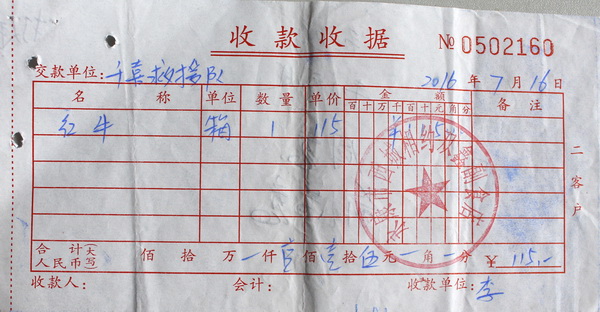 收款收据 № 0502160
交款单位：千喜救捨队 2016年7月16日
名称 单位 数量 单价 金额 备注
百十万千百十元角分
红牛 箱 1 115 1 1 5
二客户
合计人民币（大写） 佰 拾 万 一 仟 壹 佰 壹 拾 伍 元 一 角 一 分 ¥ 115.-
收款人： 会计： 收款单位：李